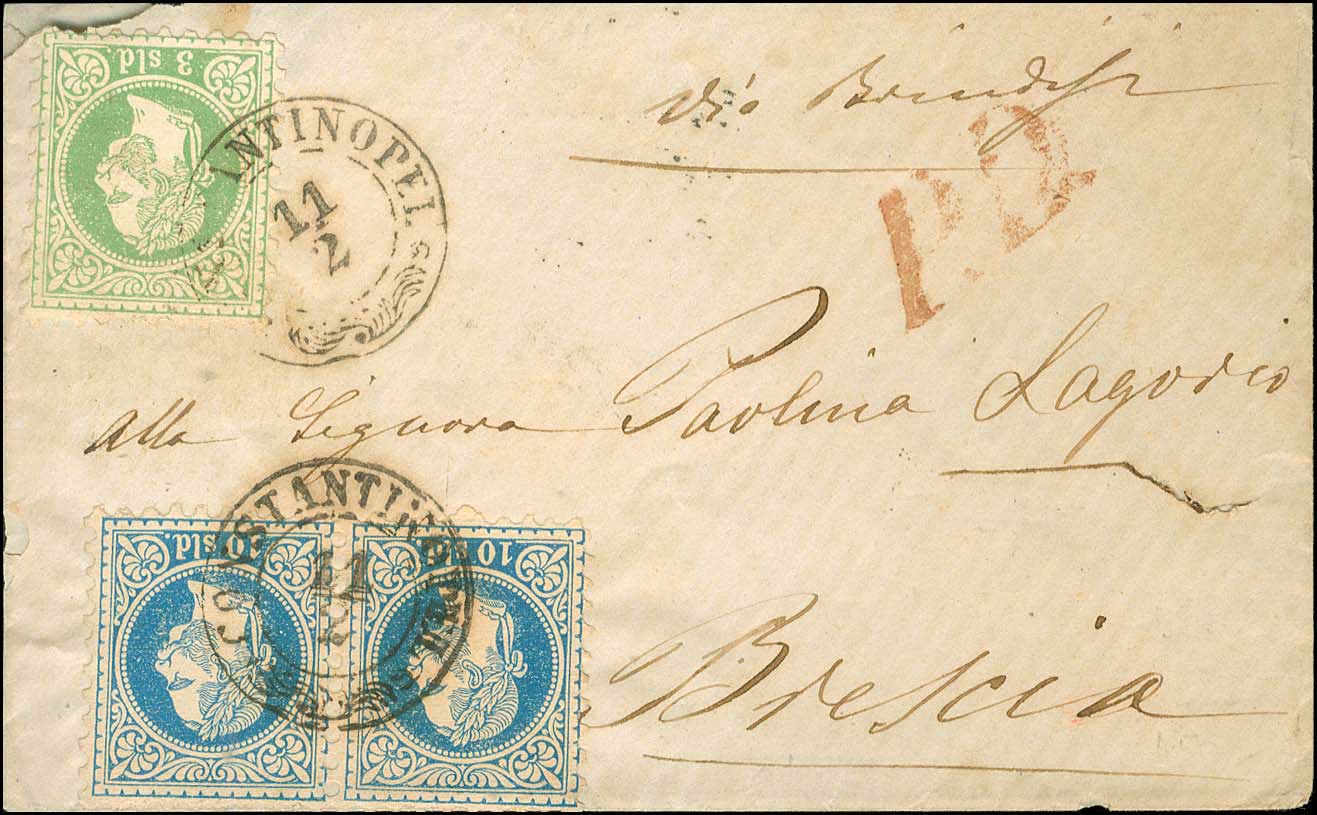 3 sld.
via Brindisi
ANTINOPEL
11
2
P.D.
alla Signora Paolina Lagorio
CONSTANTINOPEL
11
2
10 sld.
10 sld.
Brescia